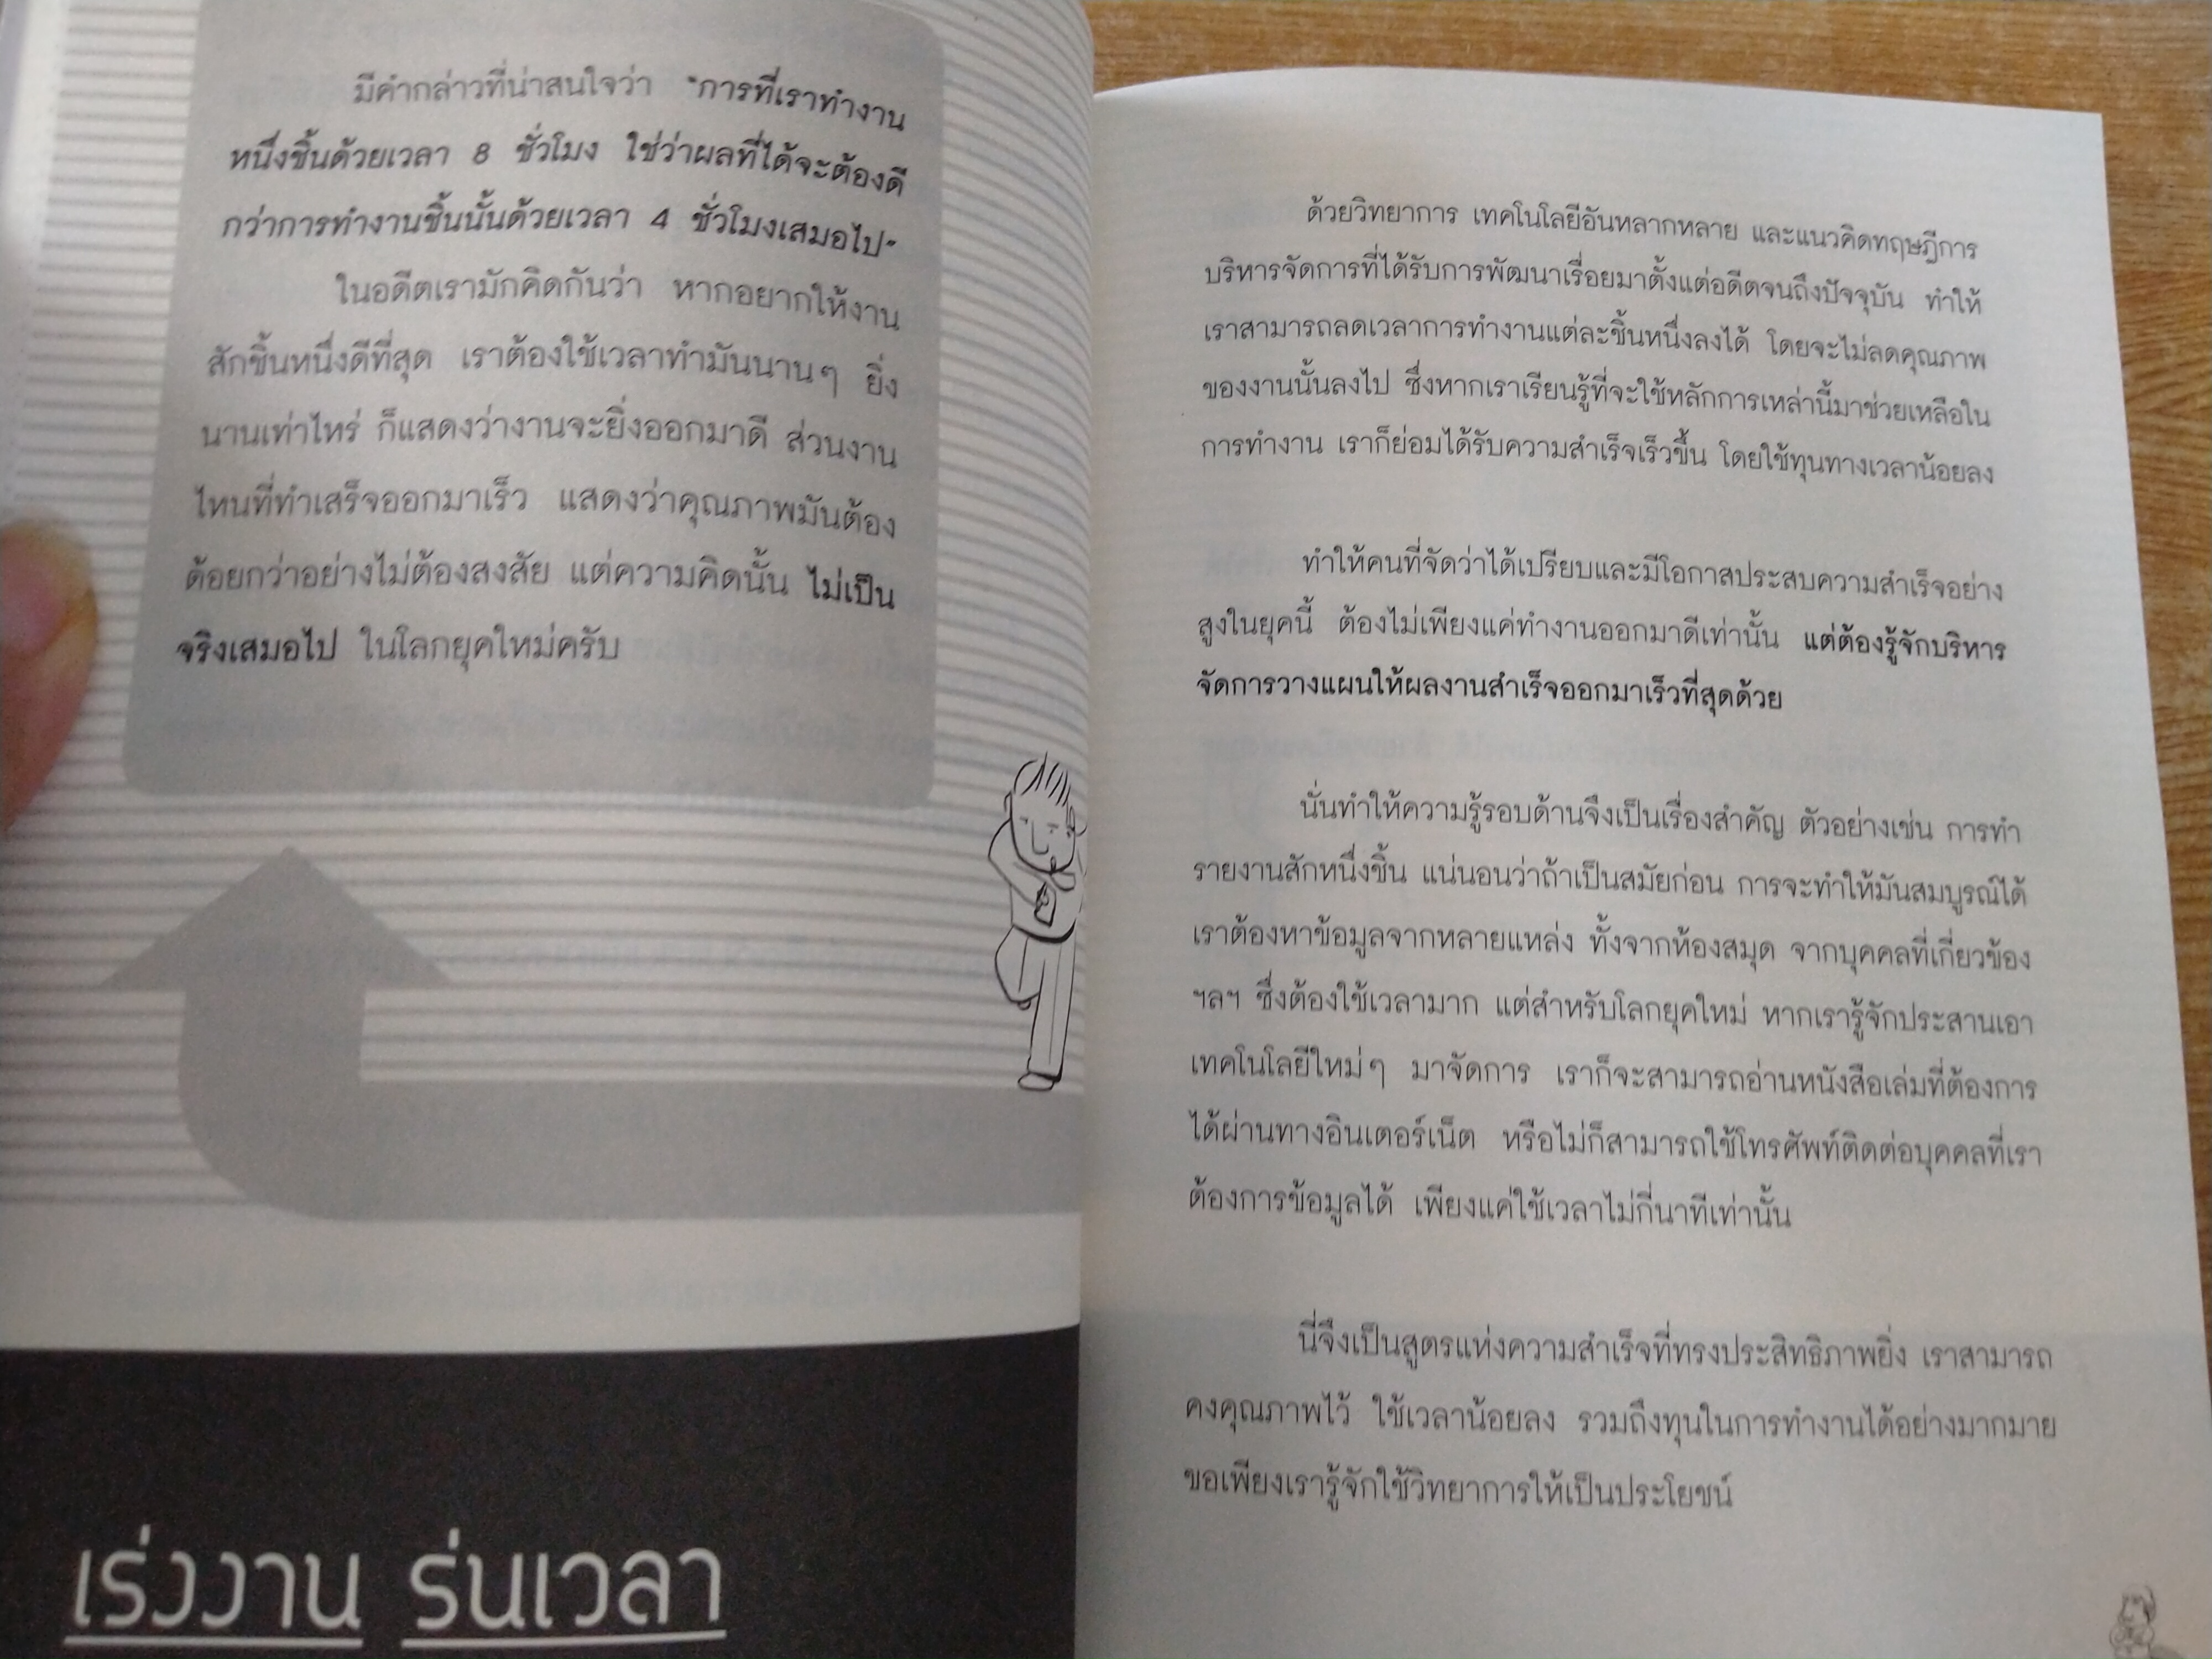 มีคำกล่าวที่น่าสนใจว่า "การที่เราทำงาน
หนึ่งชิ้นด้วยเวลา 8 ชั่วโมง ใช่ว่าผลที่ได้จะต้องดี
กว่าการทำงานชิ้นนั้นด้วยเวลา 4 ชั่วโมงเสมอไป"
ในอดีตเรามักคิดกันว่า หากอยากให้งาน
สักชิ้นหนึ่งดีที่สุด เราต้องใช้เวลาทำมันนานๆ ยิ่ง
นานเท่าไหร่ ก็แสดงว่างานจะยิ่งออกมาดี ส่วนงาน
ไหนที่ทำเสร็จออกมาเร็ว แสดงว่าคุณภาพมันต้อง
ด้อยกว่าอย่างไม่ต้องสงสัย แต่ความคิดนั้น ไม่เป็น
จริงเสมอไป ในโลกยุคใหม่ครับ
เร่งงาน ร่นเวลา
ด้วยวิทยาการ เทคโนโลยีอันหลากหลาย และแนวคิดทฤษฎีการ
บริหารจัดการที่ได้รับการพัฒนาเรื่อยมาตั้งแต่อดีตจนถึงปัจจุบัน ทำให้
เราสามารถลดเวลาการทำงานแต่ละชิ้นหนึ่งลงได้ โดยจะไม่ลดคุณภาพ
ของงานนั้นลงไป ซึ่งหากเราเรียนรู้ที่จะใช้หลักการเหล่านี้มาช่วยเหลือใน
การทำงาน เราก็ย่อมได้รับความสำเร็จเร็วขึ้น โดยใช้ทุนทางเวลาน้อยลง
ทำให้คนที่จัดว่าได้เปรียบและมีโอกาสประสบความสำเร็จอย่าง
สูงในยุคนี้ ต้องไม่เพียงแค่ทำงานออกมาดีเท่านั้น แต่ต้องรู้จักบริหาร
จัดการวางแผนให้ผลงานสำเร็จออกมาเร็วที่สุดด้วย
นั่นทำให้ความรู้รอบด้านจึงเป็นเรื่องสำคัญ ตัวอย่างเช่น การทำ
รายงานสักหนึ่งชิ้น แน่นอนว่าถ้าเป็นสมัยก่อน การจะทำให้มันสมบูรณ์ได้
เราต้องหาข้อมูลจากหลายแหล่ง ทั้งจากห้องสมุด จากบุคคลที่เกี่ยวข้อง
ฯลฯ ซึ่งต้องใช้เวลามาก แต่สำหรับโลกยุคใหม่ หากเรารู้จักประสานเอา
เทคโนโลยีใหม่ๆ มาจัดการ เราก็จะสามารถอ่านหนังสือเล่มที่ต้องการ
ได้ผ่านทางอินเตอร์เน็ต หรือไม่ก็สามารถใช้โทรศัพท์ติดต่อบุคคลที่เรา
ต้องการข้อมูลได้ เพียงแค่ใช้เวลาไม่กี่นาทีเท่านั้น
นี่จึงเป็นสูตรแห่งความสำเร็จที่ทรงประสิทธิภาพยิ่ง เราสามารถ
คงคุณภาพไว้ ใช้เวลาน้อยลง รวมถึงทุนในการทำงานได้อย่างมากมาย
ขอเพียงเรารู้จักใช้วิทยาการให้เป็นประโยชน์